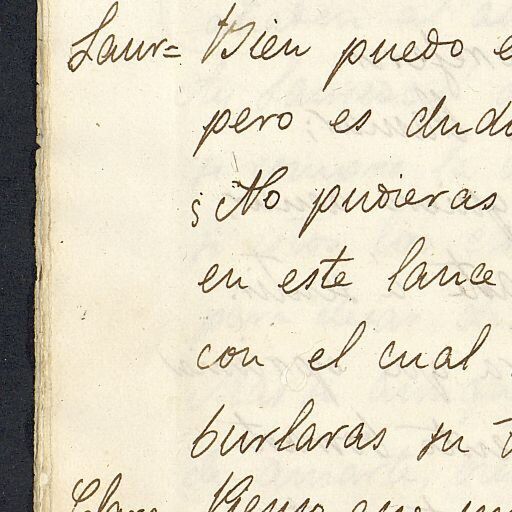 Laur= Bien puedo e
pero es dud
¿No pudieras
en este lance
con el cual
burlaras su t
Clar Pienso que